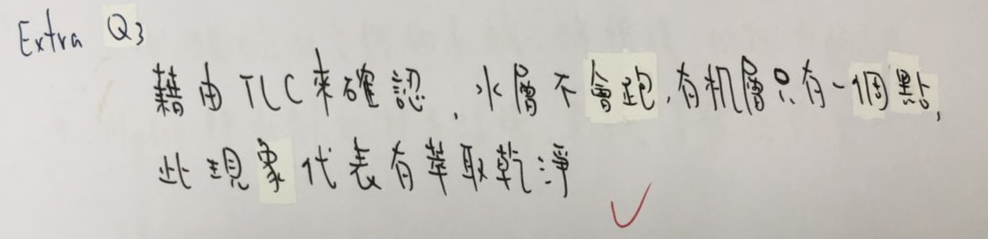 Extra Q3
藉由TLC來確認,水層不會跑,有机層只有一個點,
此現象代表有萃取乾淨